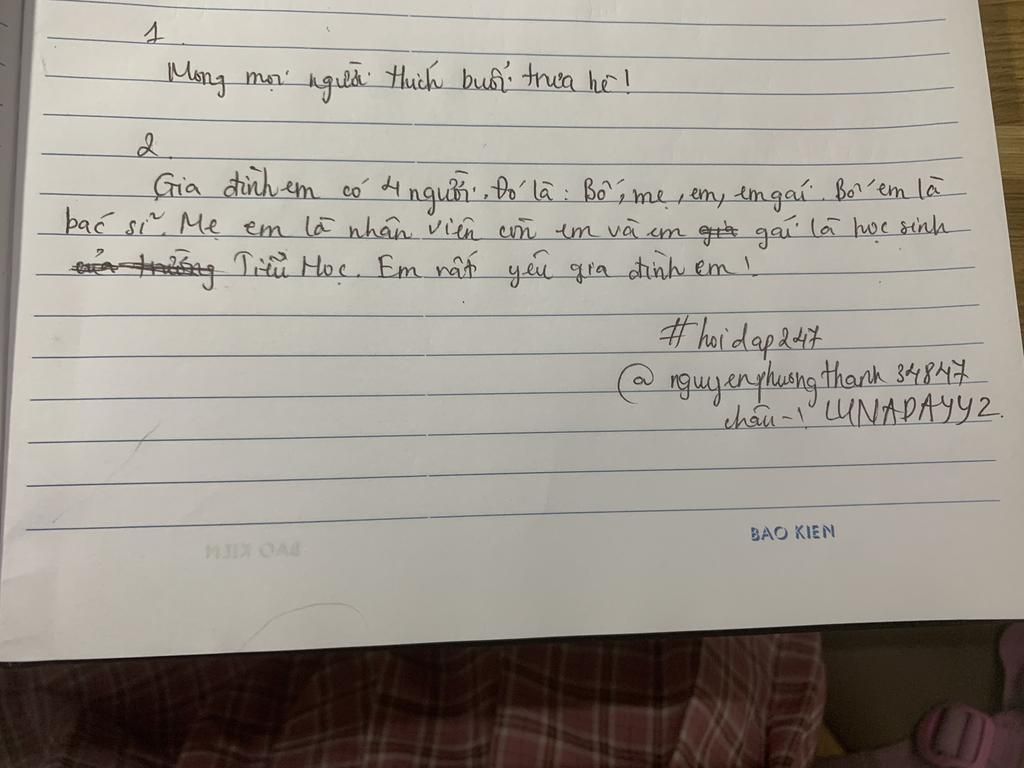 1
Mong mọi người thích buổi trưa hè!
2
Gia đình em có 4 người. Đó là: Bố, mẹ, em, em gái. Bố em là
bác sĩ. Mẹ em là nhân viên còn em và em gái là học sinh
Tiểu Học. Em rất yêu gia đình em!
#hoidap247
@nguyenphuongthanh34847
LUNADAYY2.
BAO KIEN